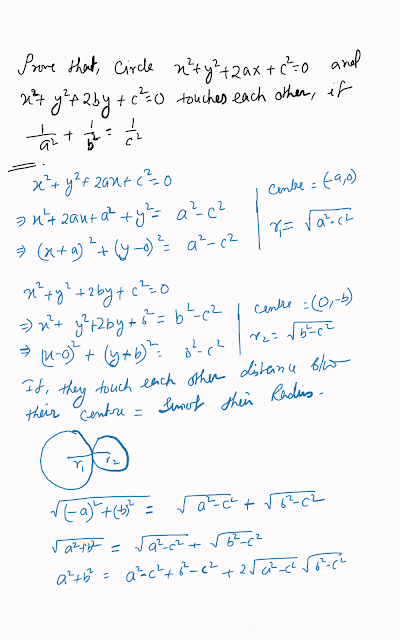 Prove that, Circle x²+y²+2ax+c²=0 and
x²+y²+2by+c²=0 touches each other, if
1/a² + 1/b² = 1/c²
x²+y²+2ax+c²=0
⇒ x²+2ax+a²+y² = a²-c²
⇒ (x+a)²+(y-0)² = a²-c²
centre = (-a,0)
r₁ = √a²-c²
x²+y²+2by+c²=0
⇒ x²+y²+2by+b² = b²-c²
⇒ (x-0)²+(y+b)² = b²-c²
centre = (0,-b)
r₂ = √b²-c²
If, they touch each other distance b/w
their centre = Sum of their Radius.
r₁ r₂
√(-a)²+(b)² = √a²-c² + √b²-c²
√a²+b² = √a²-c² + √b²-c²
a²+b² = a²-c²+b²-c²+2√a²-c² √b²-c²